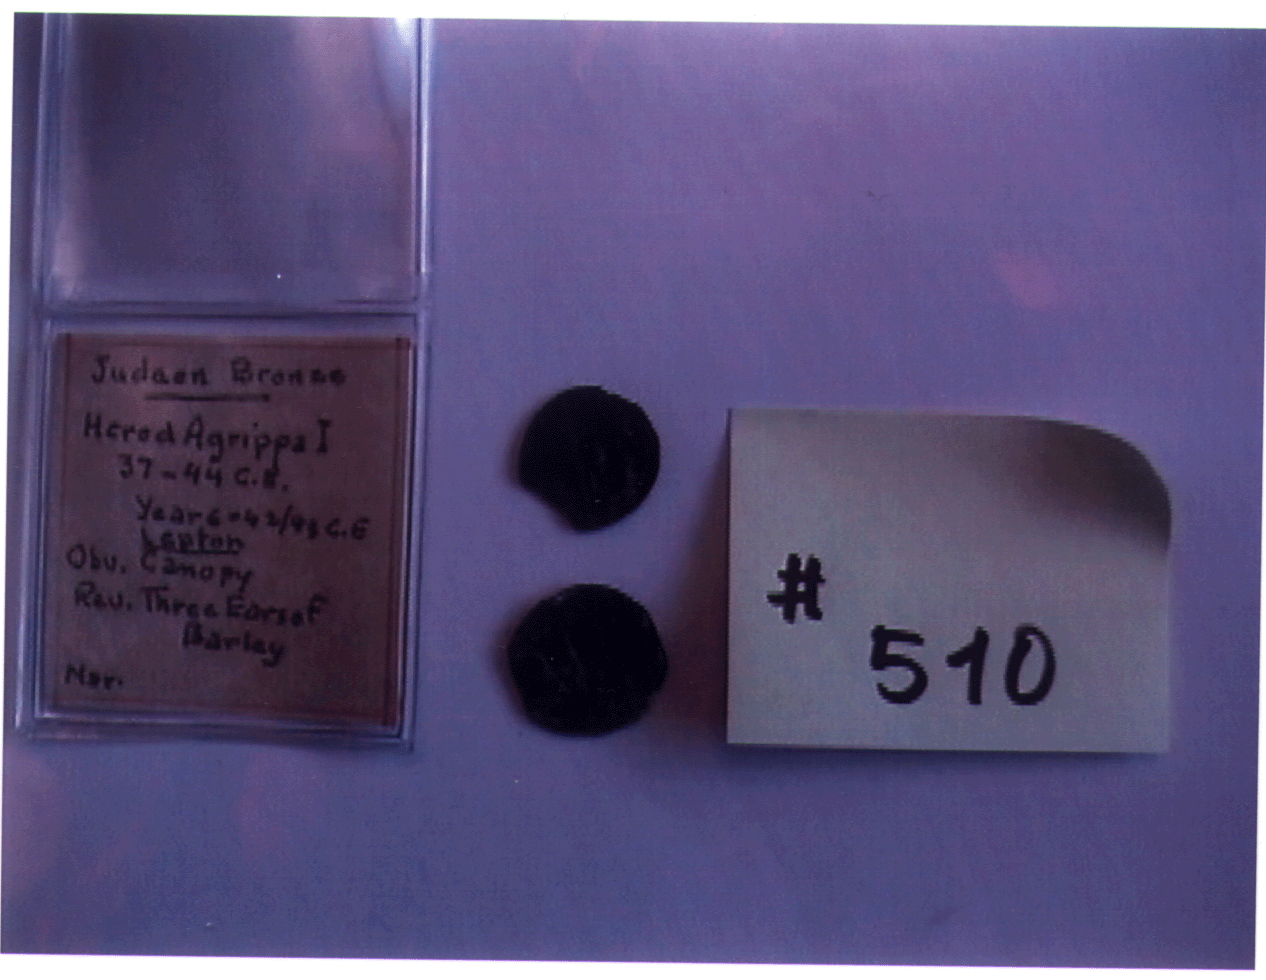 Judaen Bronze
Herod Agrippa I
37-44 C.E.
Year 6-42/43 C.E
Lepton
Obv. Canopy
Rev. Three Ears of
Barley
#
510